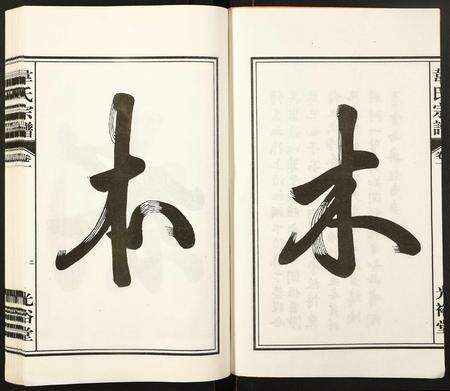 韋氏宗譜
卷一
光裕堂
木
本
韋氏宗譜
卷一
二
光裕堂